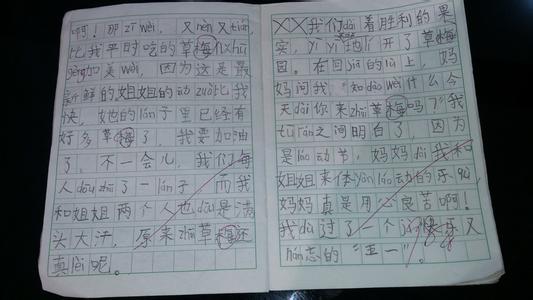 啊！那 zī wèi，又 nèn 又 tián，
比我平时吃的草梅似 hū
gèng 加美 wèi，因为这是最
新鲜的。姐姐的动 zuò 比我
快，她的 lán 子里已经有
好多草梅了，我要加油
了，不一会儿，我们每
人 dōu zhāi 了一 lán 子，而我
和姐姐两个人也 dōu 是满
头大汗，原来 zhāi 草梅还
真 lèi 呢。
XX我们 dài 着胜利的果
实，yī yī 地 lí 开了草梅
园。在回 jiā 的 lù 上，妈
妈问我：“知 dào wèi 什么今
天 dài 你来 zhāi 草梅吗？”我
tū rán 之间明白了，因为
是 láo 动节，妈妈 dài 我和
姐姐来体 yàn láo 动的乐 qù，
妈妈真是用心良苦啊！
我 dù 过了一个 快乐又
nán 忘的“五一”。